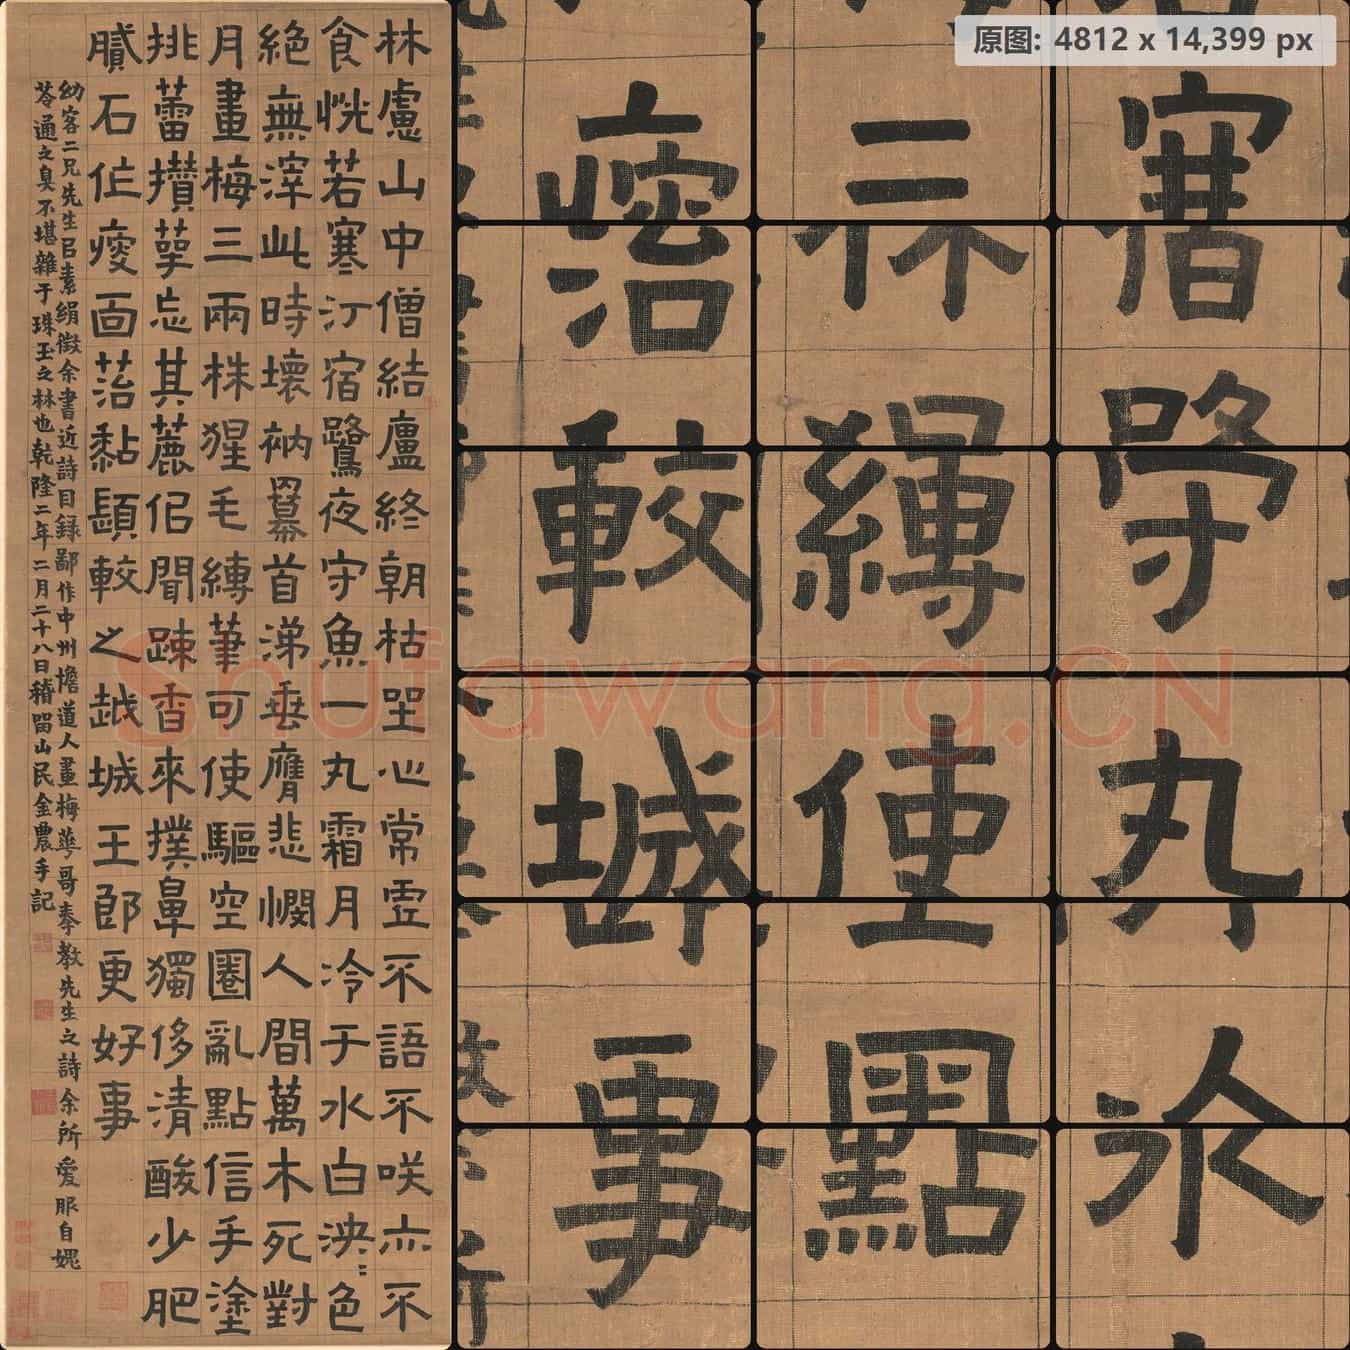 林慮山中僧結廬終朝枯坐心常虛不語不咲亦不
食恍若寒汀宿鷺夜守魚一丸霜月冷于水白泱〻色
絕無滓此時壞衲羃首涕垂膺悲憫人間萬木死對
月畫梅三兩株猩毛縛筆可使驅空圈亂點信手塗
挑蕾攢萼忘其麄但聞踈香來撲鼻獨侈清酸少肥
膩石作瘦面菭黏較之越城王郎更好事
幼客二兄先生㠯素絹徵余書近詩目錄鄙作中州憺道人畫梅華哥奉教先生之詩余所愛服自媿
苓通之臭不堪雜于珠玉之林也乾隆二年二月二十八日稽留山民金農手記
原图: 4812 x 14,399 px
較 縛 守
城 使 丸
事 點
Shufawang.CN